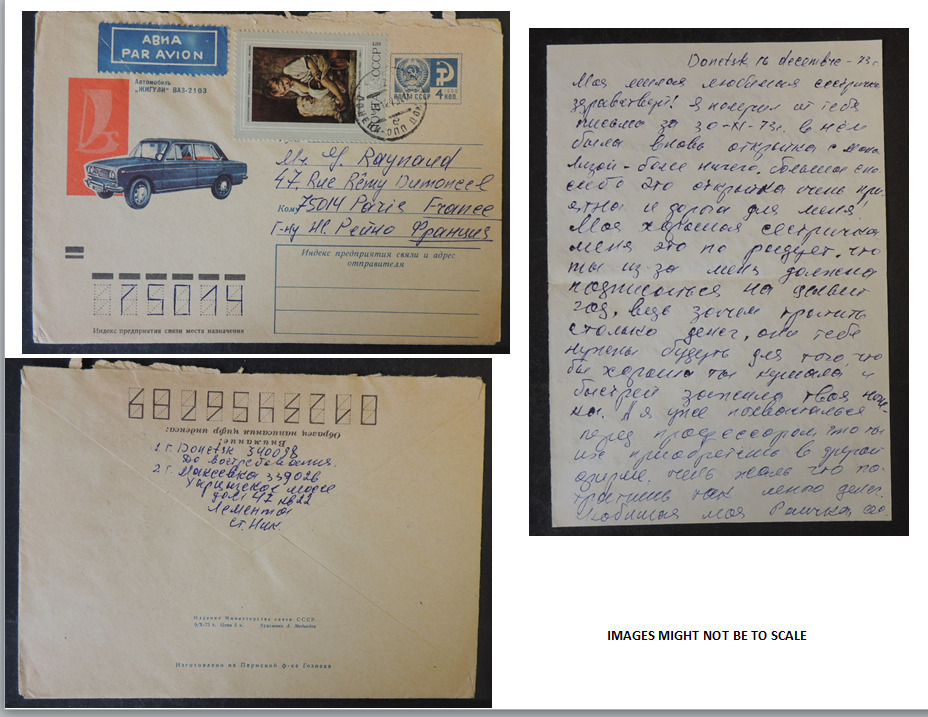 АВИА
PAR AVION
Автомобиль
"ЖИГУЛИ" ВАЗ-2103
СССР
4 КОП.
Mr Y. Raynaud
47, Rue Rémy Dumoncel
Кому 75014 Paris France
Г-ну Рейно Франция
Индекс предприятия связи и адрес
отправителя
75014
Индекс предприятия связи места назначения
0123456789
Образец написания цифр индекса:
Внимание!
1. г. Donetsk 340098
До востребования.
2. г. Макеевка 339026
шоссе
дом 47 кв 22
Лементов
Ст. Ник
Издание Министерства связи СССР.
Художник А.
Изготовлено на Пермской ф-ке Гознака
Donetsk 16 decembre - 73 г.
Моя милая любимая сестричка
здравствуй! Я получил от тебя
письмо за 30-XI-73г. в нём
была вновь открытка с Мона
Лизой - более ничего. Большое спа
сибо это открытка очень при
ятна и дорога для меня!
Моя хорошая сестричка
меня это не радует, что
ты из за меня должна
подписаться на целый
год, ведь зачем тратить
столько денег, они тебе
нужены будуть для того, что
бы хорошо ты кушала и
быстрей зажила твоя нож
ка. А я уже похвастался
перед профессором, что ты
их приобретишь в другой
фирме. Очень жаль что по-
тратишь так много денег.
Любимая моя
IMAGES MIGHT NOT BE TO SCALE